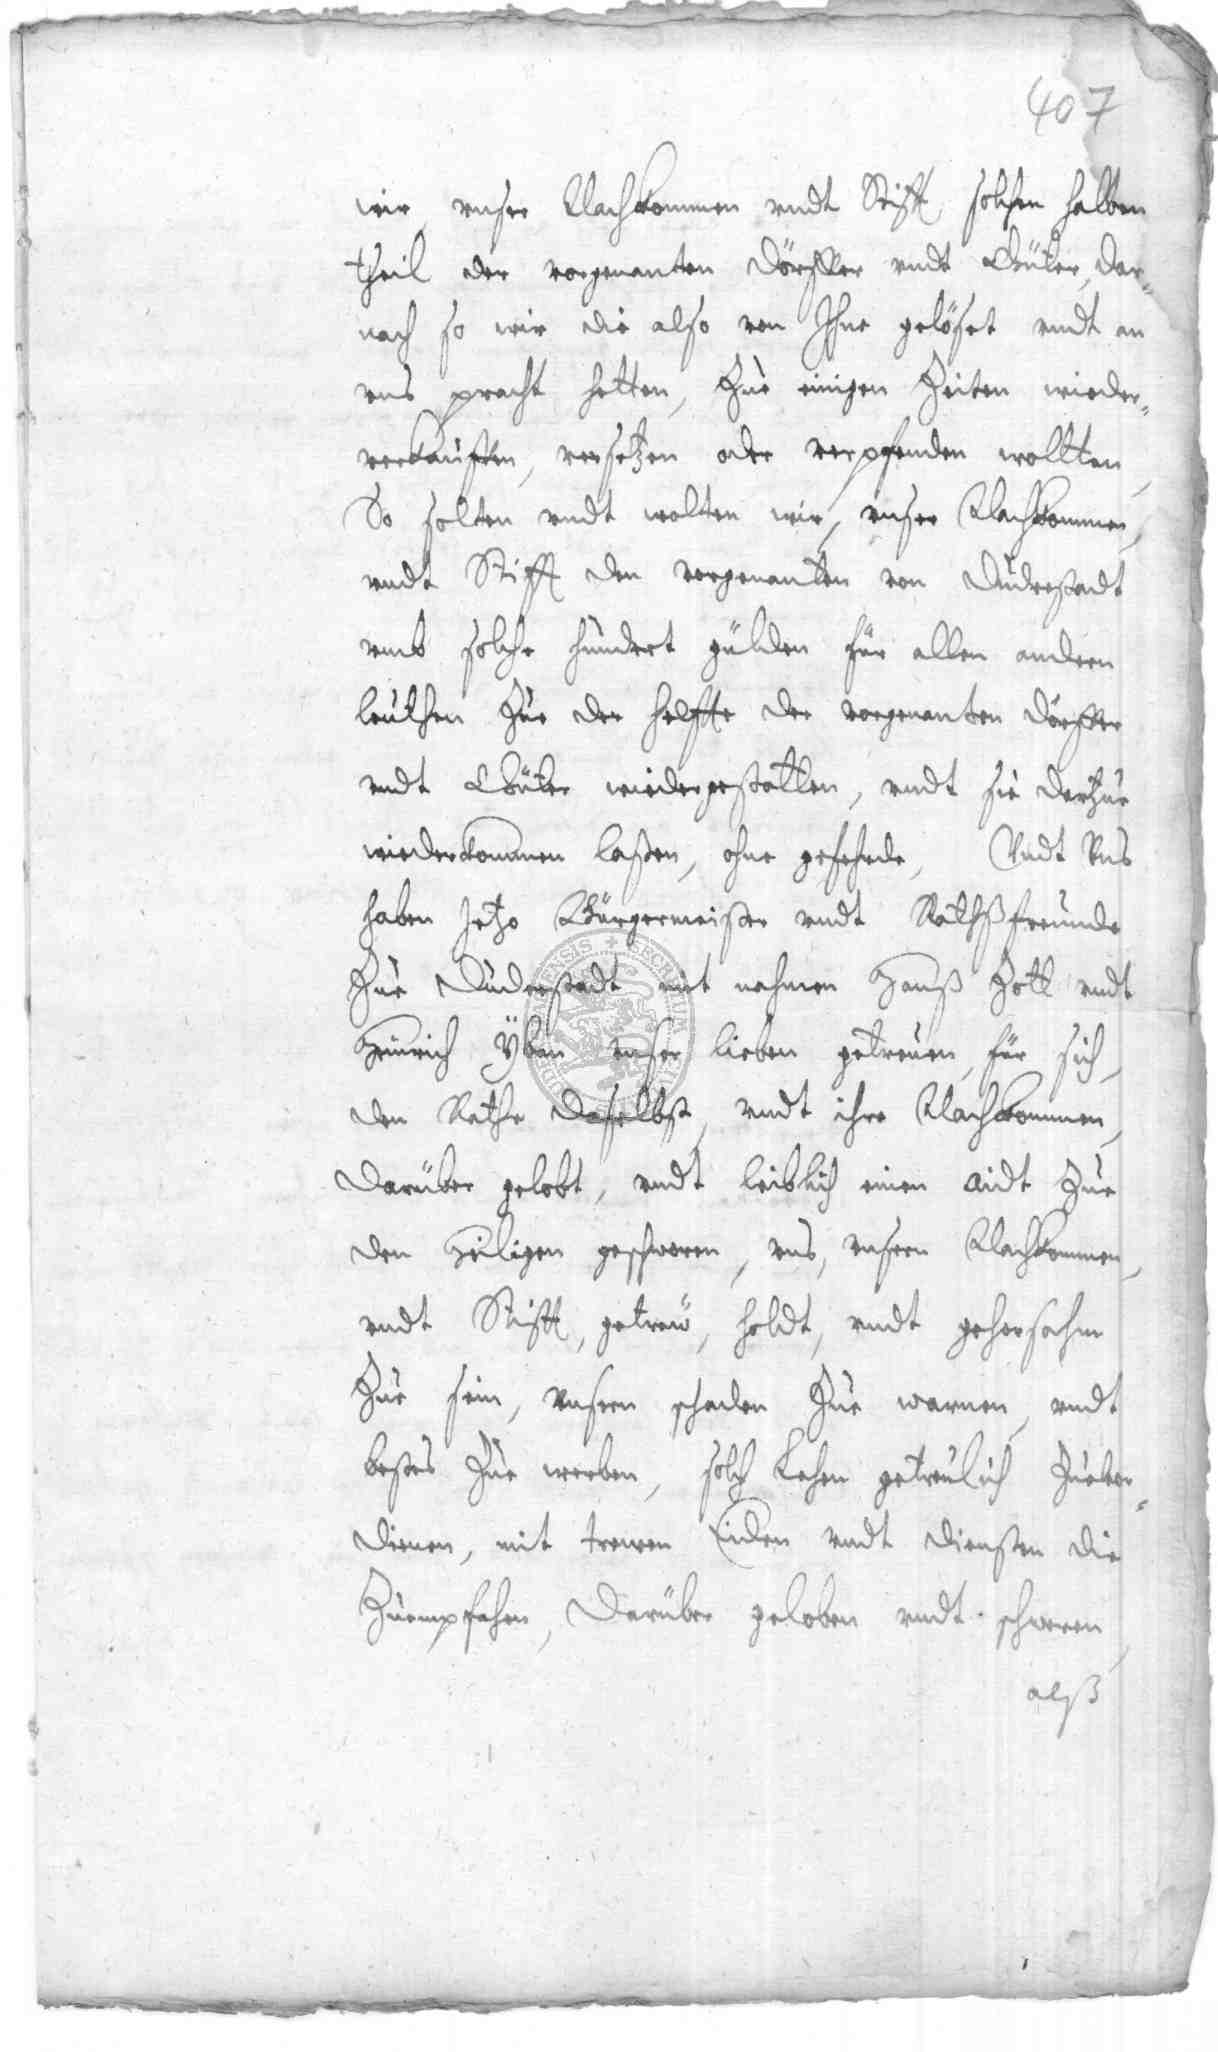 407
wir, vnser Nachkommen vndt Stifft, solchen halben
theil der vorgenanten Dörffer vndt Güeter, dar-
nach so wir die also von Ihne gelöset vndt an
vns pracht hetten, Zue einigen Zeiten wieder-
verkauffen, versetzen oder verpfenden wollten,
So solten vndt wolten wir, vnser Nachkommen,
vndt Stifft den vorgenanten von Duderstadt
vmb solche hundert gulden für allen andern
leuthen Zue der helffte der vorgenanten Dörffer
vndt Güeter wiedergestatten, vndt sie darZue
wiederkommen laßen, ohne gefehrde, Vndt Vns
haben Jetzo Bürgermeister vndt Rathßfreunde
Zue Duderstadt mit nahmen Hanß Zott vndt
Heinrich Ÿben vnser lieben getreuen, für sich,
den Rathe daselbst, vndt ihre Nachkommen,
darüber gelobt, vndt leiblich einen aidt Zue
den Heiligen geschworen, vns, vnsern Nachkommen,
vndt Stifft, getreu, holdt, vndt gehorsahm
Zue sein, vnsern schaden Zue warnen, vndt
bestes Zue werben, solch Lehen getreulich Zuever-
dienen, mit trewen Eiden vndt diensten die
Zuempfahen, darüber geloben vndt schweren,
alß
SECRETUM